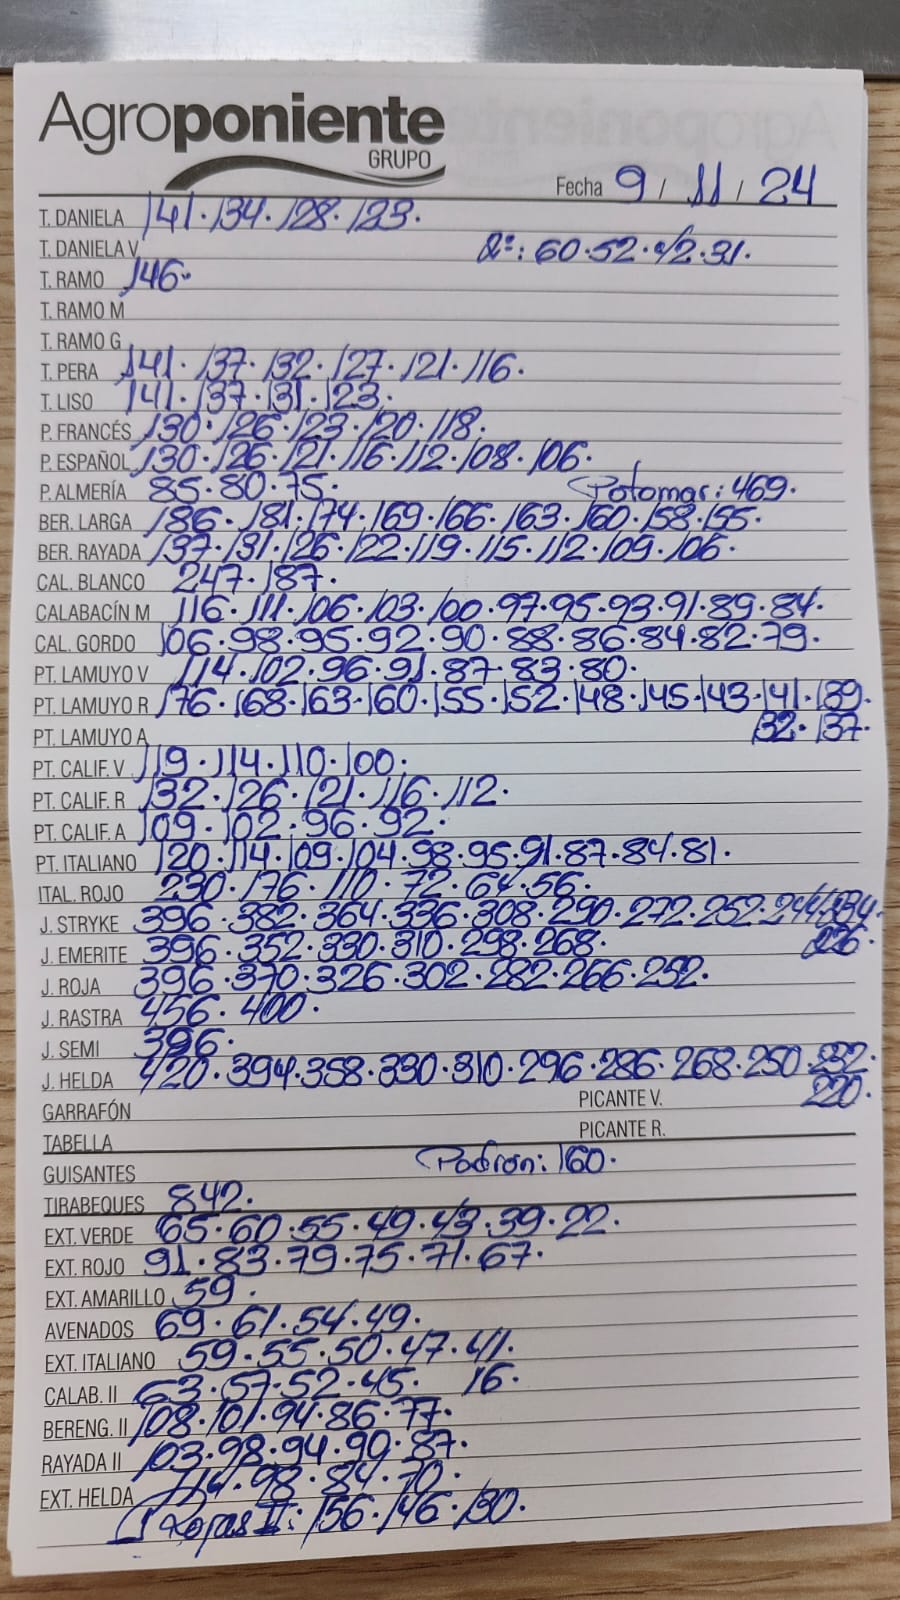 Agroponiente
GRUPO
Fecha 9 / 11 / 24
T. DANIELA 141. 134. 128. 123.
T. DANIELA V 2ª: 60.52.42.31.
T. RAMO 146.
T. RAMO M
T. RAMO G
T. PERA 141. 137. 132. 127. 121. 116.
T. LISO 141. 137. 131. 123.
P. FRANCÉS 130. 126. 123. 120. 118.
P. ESPAÑOL 130. 126. 121. 116. 112. 108. 106.
P. ALMERÍA 85.80.75. Potomar: 469.
BER. LARGA 186. 181. 174. 169. 166. 163. 160. 158. 155.
BER. RAYADA 137. 131. 126. 122. 119. 115. 112. 109. 106.
CAL. BLANCO 247. 187.
CALABACÍN M 116. 111. 106. 103. 100. 97.95.93.91.89.84.
CAL. GORDO 106.98.95.92.90.88.86.84.82.79.
PT. LAMUYO V 114. 102. 96. 91. 87. 83. 80.
PT. LAMUYO R 176. 168. 163. 160. 155. 152. 148. 145. 143. 141. 139.
132. 137.
PT. LAMUYO A
PT. CALIF. V 119. 114. 110. 100.
PT. CALIF. R 132. 126. 121. 116. 112.
PT. CALIF. A 109. 102. 96. 92.
PT. ITALIANO 120. 114. 109. 104. 98. 95. 91. 87. 84. 81.
ITAL. ROJO 230. 176. 110. 72. 64. 56.
J. STRYKE 396. 382. 364. 336. 308. 290. 272. 252. 244. 234.
226.
J. EMERITE 396. 352. 330. 310. 298. 268.
J. ROJA 396. 370. 326. 302. 282. 266. 252.
J. RASTRA 456. 400.
J. SEMI 396.
J. HELDA 420. 394. 358. 330. 310. 296. 286. 268. 250. 232.
220.
GARRAFÓN PICANTE V.
TABELLA PICANTE R.
GUISANTES Padron: 160.
TIRABEQUES 842.
EXT. VERDE 65. 60. 55. 49. 43. 39. 22.
EXT. ROJO 91. 83. 79. 75. 71. 67.
EXT. AMARILLO 59.
AVENADOS 69. 61. 54. 49.
EXT. ITALIANO 59. 55. 50. 47. 41.
CALAB. II 63. 57. 52. 45. 16.
BERENG. II 108. 101. 94. 86. 77.
RAYADA II 103. 98. 94. 90. 87.
EXT. HELDA 114. 98. 84. 70.
Rojas II: 156. 146. 130.